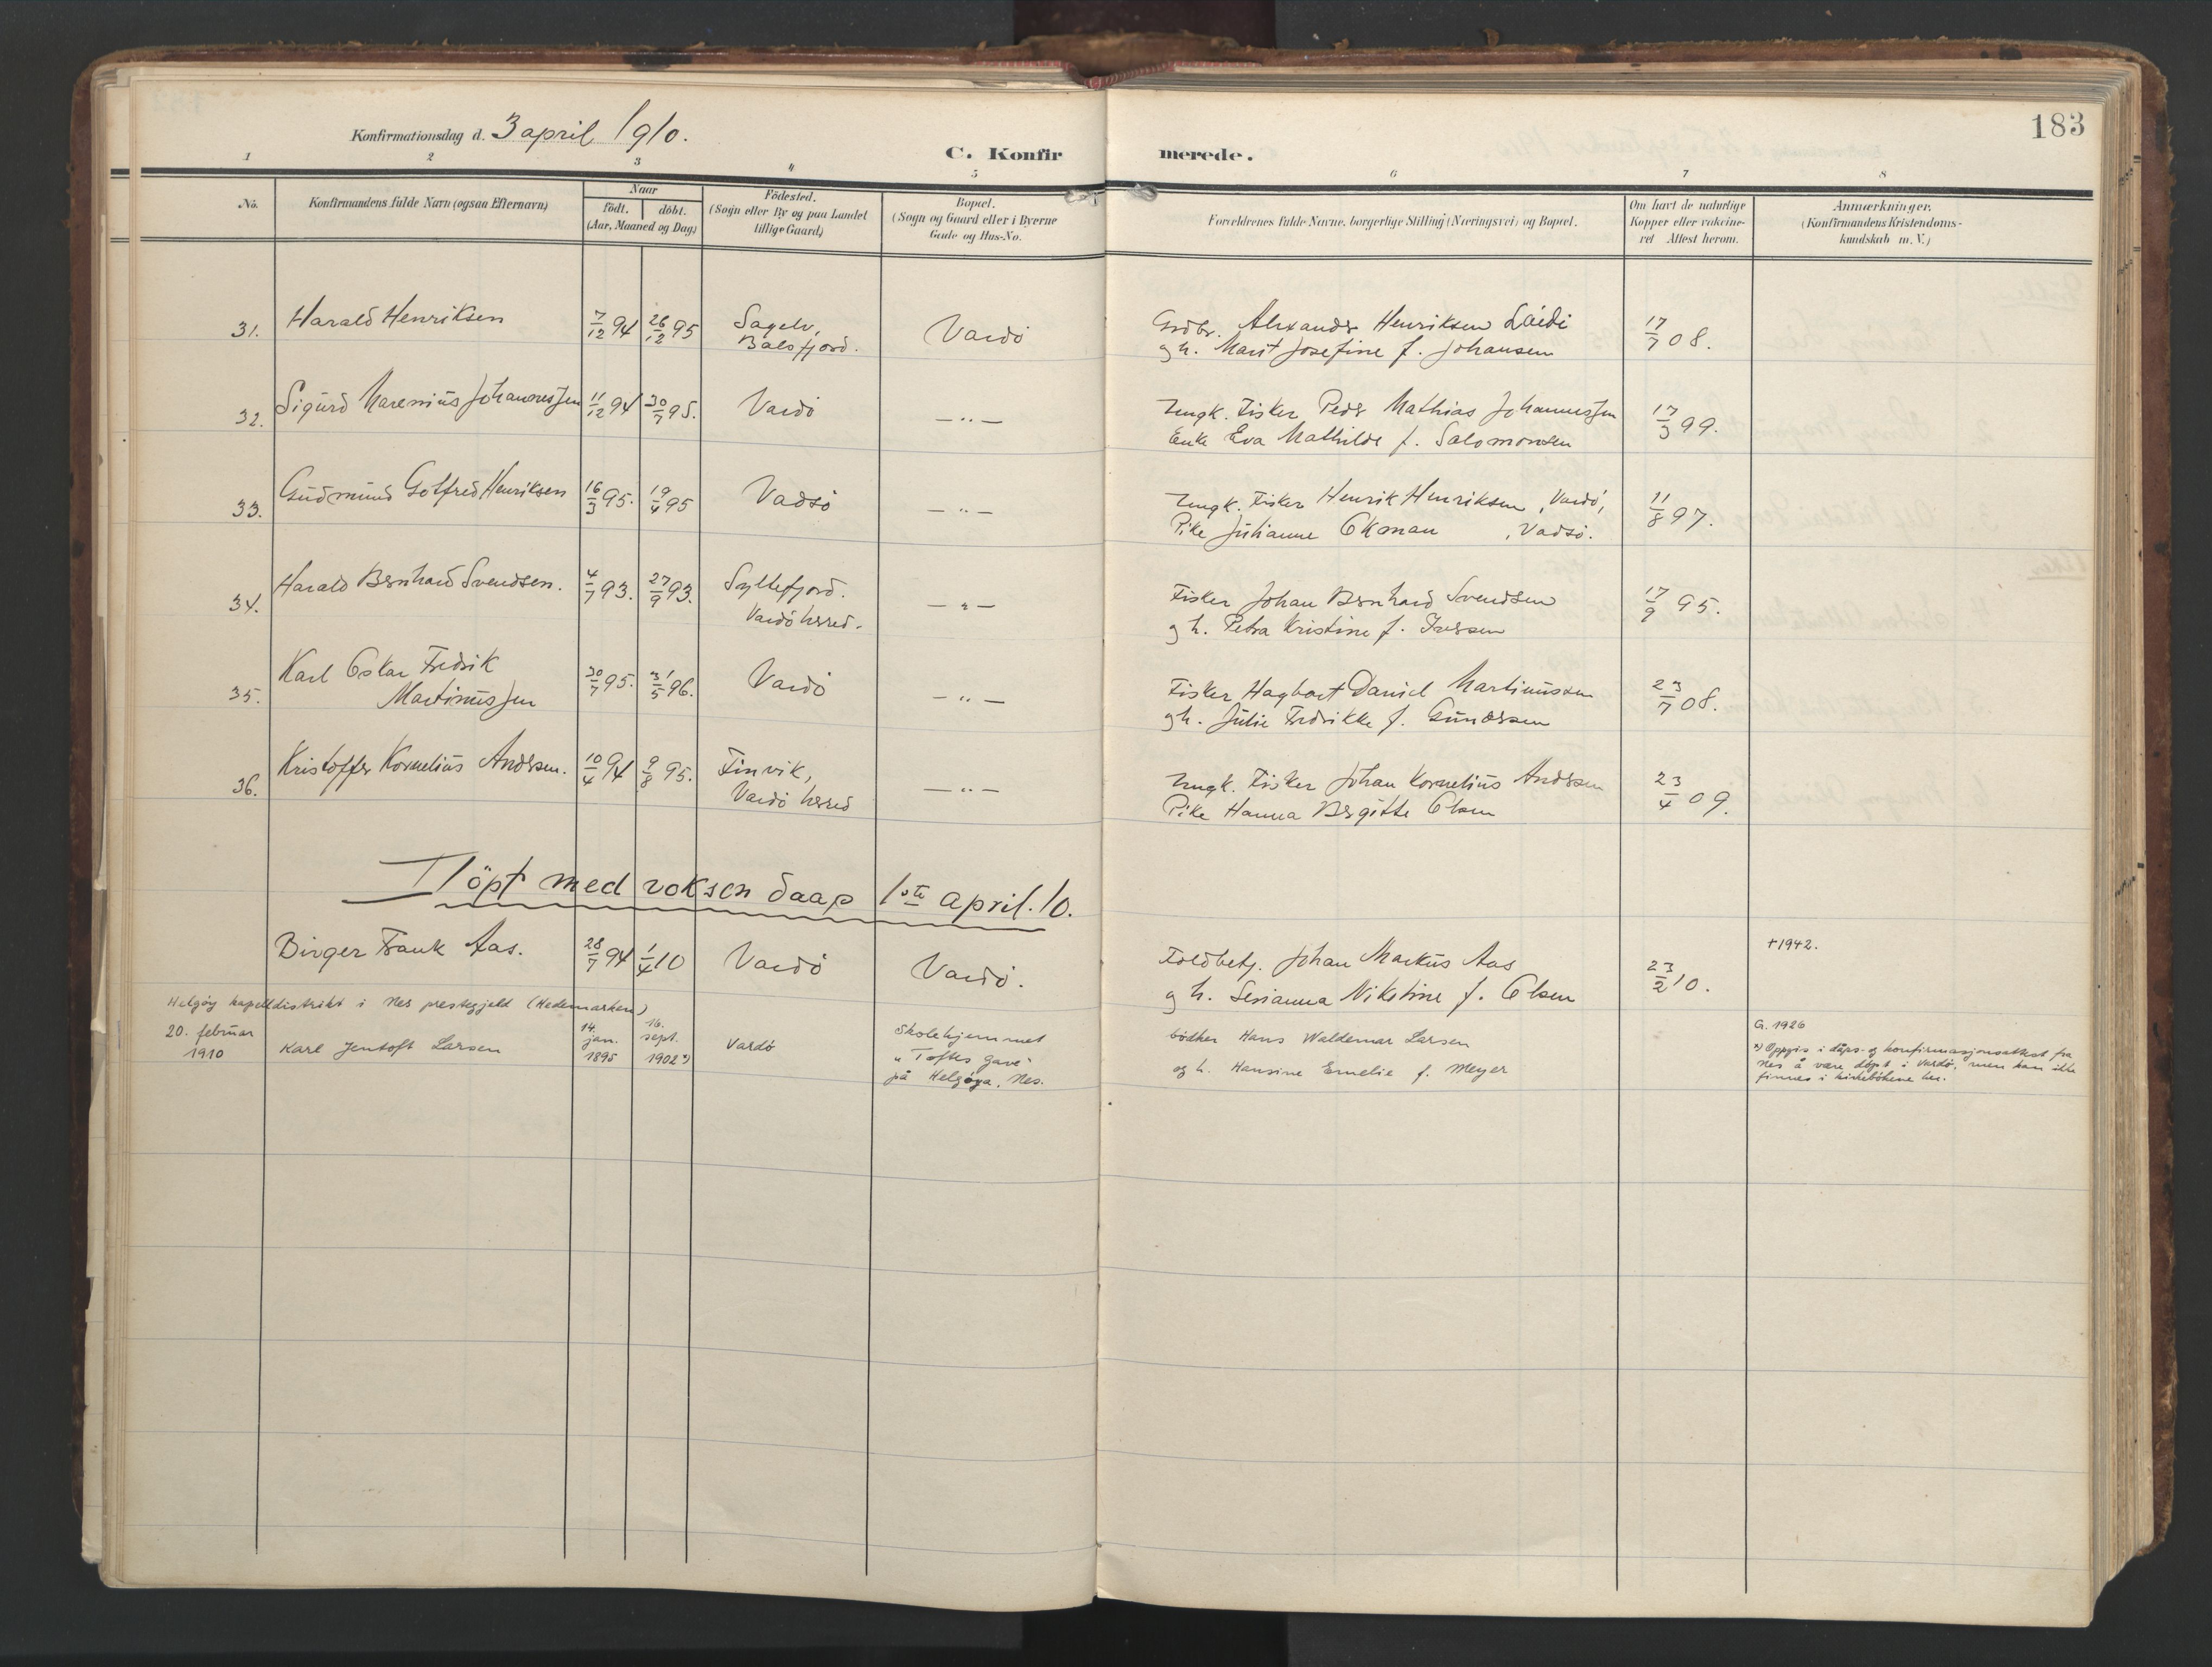 183
Konfirmationsdag d. 3 april 1910.
C. Konfirmerede.
1 2 3 4 5 6 7 8
No.
Konfirmandens fulde Navn (ogsaa Efternavn)
Naar
födt. döbt.
(Aar, Maaned og Dag)
Födested.
(Sogn eller By og paa Landet
tillige Gaard)
Bopæl.
(Sogn og Gaard eller i Byerne
Gade og Hus-No.
Forældrenes fulde Navne, borgerlige Stilling (Næringsvei) og Bopæl.
Om havt de naturlige
Kopper eller vakcine-
ret Attest herom.
Anmærkninger.
(Konfirmandens Kristendoms-
kundskab m. V.)
31. Harald Henriksen 7/12 94 26/12 95 Sagelv, Balsfjord. Vardö
Grdbr. Alexander Henriksen Láidi
og h. Marit Josefine f. Johansen
17/7 08.
32. Sigurd Marenius Johannessen 11/12 94 30/7 95. Vardö — " —
Ungk. Fisker Peder Mathias Johannessen
Enke Eva Mathilde f. Salomonsen
17/3 99.
33. Gudmund Gotfred Henriksen 16/3 95. 19/4 95 Vadsö — " —
Ungk. Fisker Henrik Henriksen, Vardö,
Pike Julianne Ekman, Vadsö.
11/8 97.
34. Harald Bernhard Svendsen. 4/7 93. 27/9 93. Syltefjord. Vardö herred. — " —
Fisker Johan Bernhard Svendsen
og h. Petra Kristine f. Iversen
17/9 95.
35. Karl Oskar Fredrik
Martinussen 30/7 95. 31/5 96. Vardö — " —
Fisker Hagbart Daniel Martinussen
og h. Julie Fredrikke f. Gundersen
23/7 08.
36. Kristoffer Kornelius Andersen. 10/4 94 9/8 95. Finvik, Vardö herred — " —
Ungk. Fisker Johan Kornelius Andersen
Pike Hanna Bergitte Olsen
23/4 09.
Döpt med voksen daap 1ste april. 10.
Birger Frank Aas. 28/7 94 1/4 10 Vardö Vardö.
Toldbetj. Johan Markus Aas
og h. Serianna Nikoline f. Olsen
23/2 10.
+ 1942.
Helgøy kapelldistrikt i Nes prestegjeld (Hedemarken)
20. februar
1910
Karl Jentoft Larsen
14.
jan.
1895
16.
sept.
1902 x)
Vardø
Skolehjemmet
"Toftes Gave"
på Helgøya, Nes.
bødker Hans Waldemar Larsen
og h. Hansine Emelie f. Meyer
G. 1926
x) Oppgis i dåps- og konfirmasjonsattest fra
Nes å være døpt i Vardø, men kan ikke
finnes i kirkebøkene her.